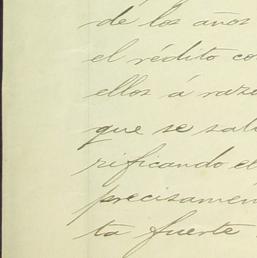 de los años
el rédito co
ellos á raz
que se sal
rificando el
precisamen
ta fuerte